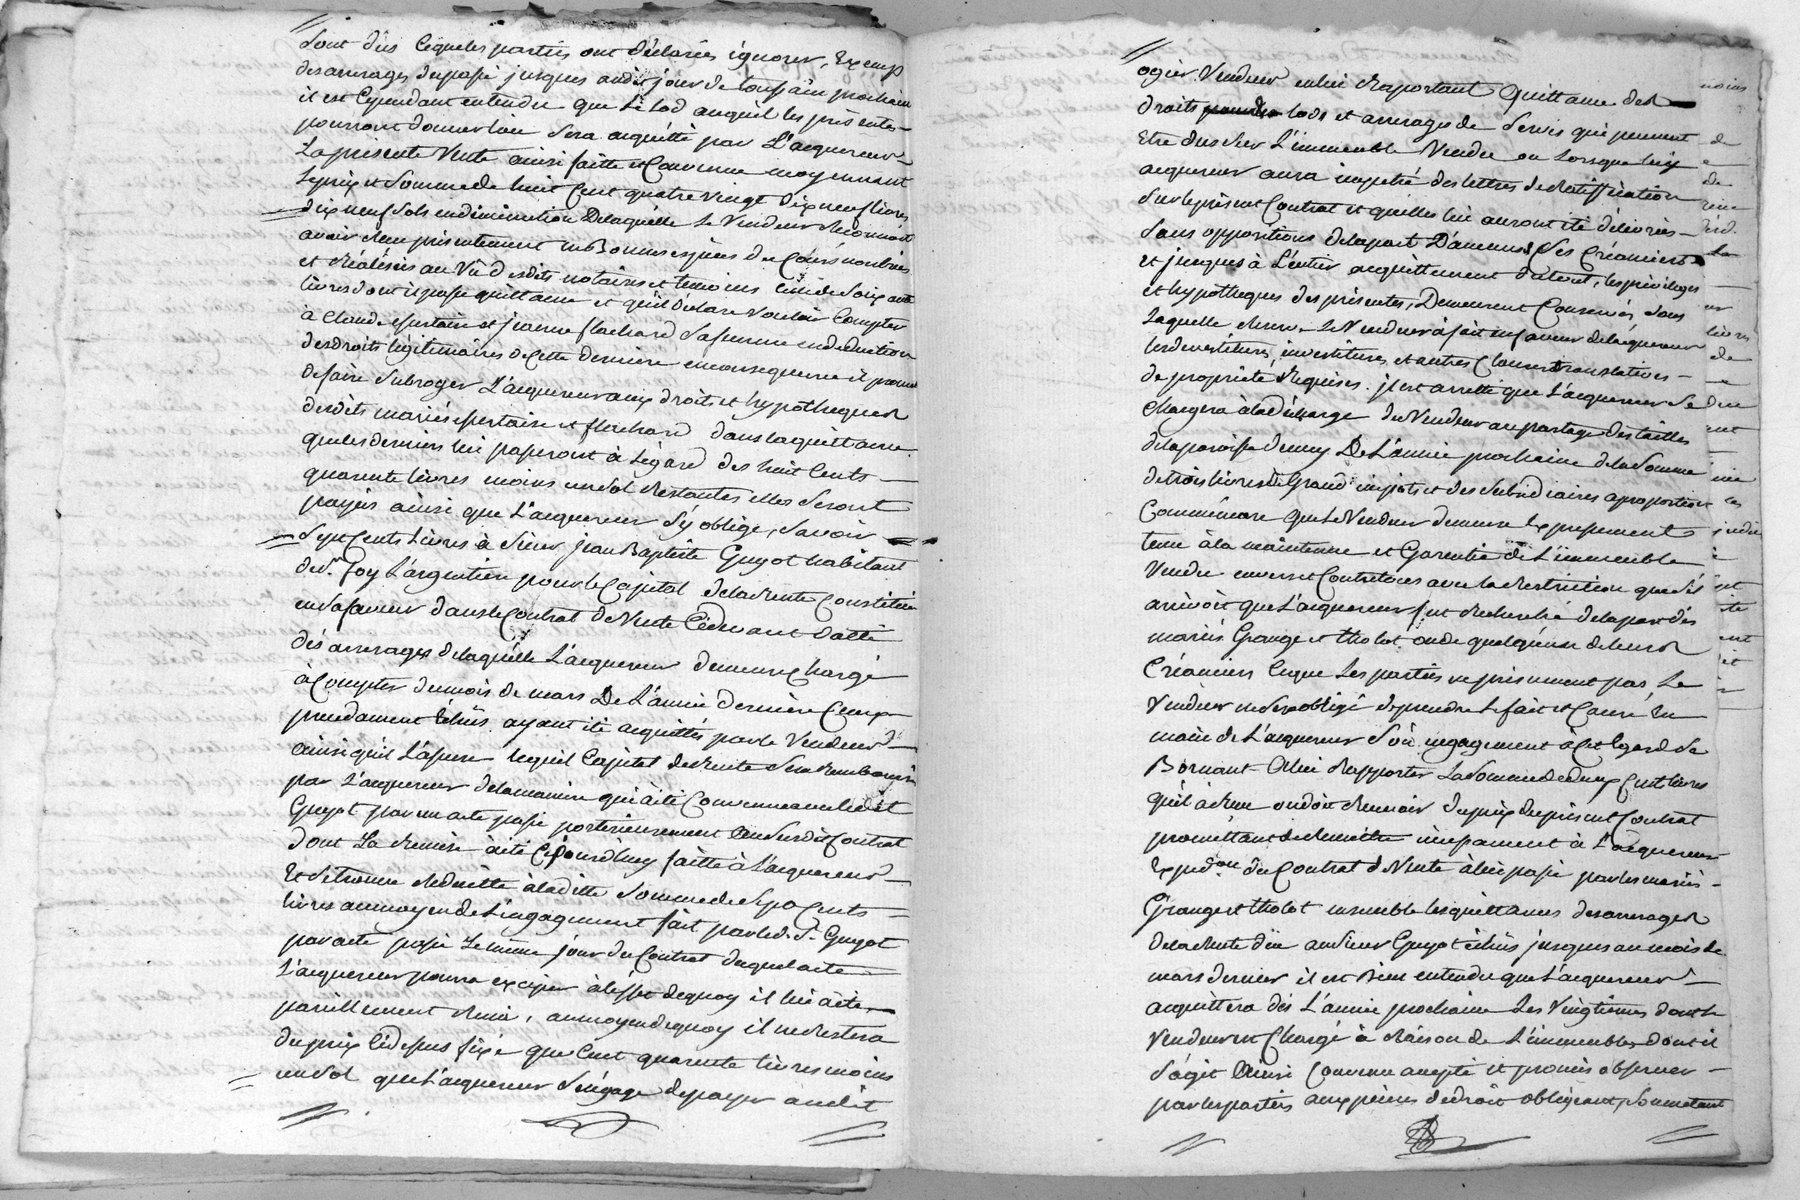 sont dus ceque les parties ont déclarées ignorer, Exemp
des arrerages du passé jusques audit jour de toussain prochain
il est Cependant entendu que Le lod auquel les presentes
pourront donner lieu sera acquitté par L'acquereur
La présente Vente ainsi faitte et Convenue moyennant
Leprix et Somme de huit Cent quatre vingt dix neuf livres
dix neuf sols endiminution Delaquelle Le Vendeur Reconnoit
avoir Reçu présentement en Bonnes espèces du Cours nombrées
et Réalisées au Vû desdits notaires et temoins Celle de Soixante
livres dont il passe quittance et qu'il déclare vouloir Compter
à Claude epertaire et jeanne flachard Safemme endeduction
desdroits légitimaires de Cette dernière enconsequence il promet
defaire Subroger L'acquereur aux droits et hypotheques
desdits mariés epertaire et flachard dans laquittance
queles derniers lui passeront à Legard des huit Cents
quarante livres moins un Sol Restantes elles Seront
payées ainsi que L'acquereur S'y oblige, Savoir
Sept Cents Livres à Sieur jean Baptiste Guyot habitant
de St foy L'argentiere pour le Capital delaRente Constituée
ensafaveur dans le Contrat de Vente Cidevant datté
dés arrerages delaquelle L'acquereur demeure Chargé
à Compter dumois de mars De L'année dernière Ceux
precedament échûs ayant été acquittés par le Vendeur
ainsi qu'il l'assure lequel Capital deRente Sera Remboursé
par L'acquereur delamaniere qui a été Convenue avec ledit
Guyot par un acte passé posterieurement audit Contrat
dont La Remise à été Cejourdhuy faitte à L'acquereur
Et Setrouve Reduitte à ladite Somme de Sept Cents
livres aumoyen de L'engagement fait par led. S. Guyot
par acte passé Le même jour du Contrat duquel acte
L'acquereur pourra exciper à l'effet dequoy il lui à été
pareillement Remis, aumoyen dequoy il ne Restera
du prix Cidessus fixé que Cent quarante livres moins
un Sol que L'acquereur S'engage de payer audit
ogier Vendeur enlui Raportant Quittance des
droits lods et arrerages de Servis qui peuvent
Etre dus Sur L'immeuble Vendu ou Lorsque luy
acquereur aura impetré des lettres de Ratiffication
Sur leprésent Contrat et qu'elles lui auront été délivrées
Sans oppositions delapart D'aucuns Ses Créanciers
et jusques à L'entier acquittement dutout, les privileges
et hypotheques des présentes, Demeurent Conservés Sous
Laquelle reserve Le Vendeur à fait en faveur de l'acquereur
les devestitures, investitures, et autres Clauses translatives
de proprieté Requises. il est arretté que L'acquereur Se
Chargera à la décharge du Vendeur au partage des tailles
delaparoisse de mey De L'année prochaine de la Somme
de trois livres de Grand impots et des Subsidiaires aproportion
Commémore que le Vendeur demeure Expressement
tenu à la maintenue et Garentie de L'immeuble
Vendu envers et Contre tous avec la Restriction que s'il
arrivoit que L'acquereur fut Recherché delapart dés
mariés Grange et tholot ou de quelqu'un de leurs
Créanciers Ceque Les parties ne présument pas, Le
Vendeur ne Sera obligé de prendre Le fait et Cause En
main de L'acquereur Son engagement à Cet Egard Se
Bornant à lui Rapporter La Somme de deux Cent livres
qu'il à Reçu ou doit Recevoir du prix du présent Contrat
promettant de Remettre incessament à L'acquereur
Expedon du Contrat de Vente à lui passé par les mariés
Grange et tholot ensemble les quittances des arrerages
de la Rente due au Sieur Guyot échûs jusques au mois de
mars dernier il est Bien entendu que L'acquereur
acquittera dés L'année prochaine Les Vingtiemes dont le
Vendeur est Chargé à Raison de L'immeuble dont il
S'agit Ainsi Convenu accepté et promis observer
par les parties aux peines de droit obligeant, Soumettant